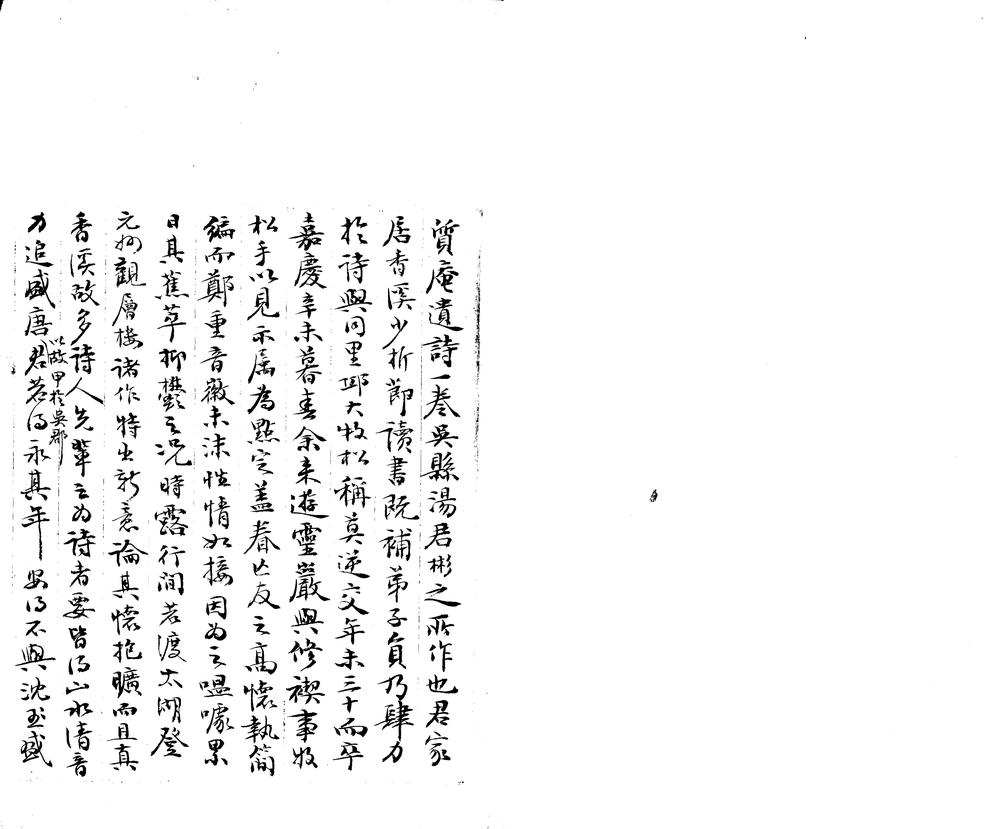 質庵遺詩一卷吳縣湯君彬之所作也君家
居香溪少折節讀書既補弟子員乃肆力
於詩與同里邱大牧松稱莫逆交年未三十而卒
嘉慶辛未暮春余來遊靈巖與修禊事牧
松手以見示屬為點定蓋眷亡友之高懷執簡
編而鄭重音徽未沫性情如接因為之嗢噱累
日其蕉萃抑鬱之况時露行間若渡太湖登
元妙觀層樓諸作特出新意論其懷抱曠而且真
香溪故多詩人先輩之為詩者要皆得山水清音
以故甲於吳郡
力追盛唐君若得永其年 安得不與沈盛